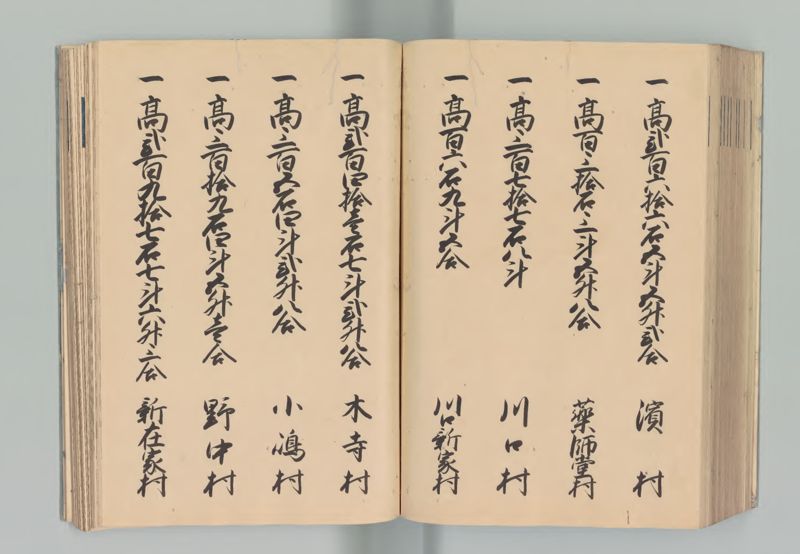 一 高弐百六拾六石五斗五升弐合 濱村
一 高百三拾石三斗五升八合 薬師堂村
一 高三百七拾七石八斗 川口村
一 高百六石九斗五合 川口新家村
一 高弐百四拾壱石七斗弐升八合 木寺村
一 高三百五石四斗弐升八合 小嶋村
一 高三百拾九石四斗五升壱合 野中村
一 高弐百九拾七石七斗六升三合 新在家村